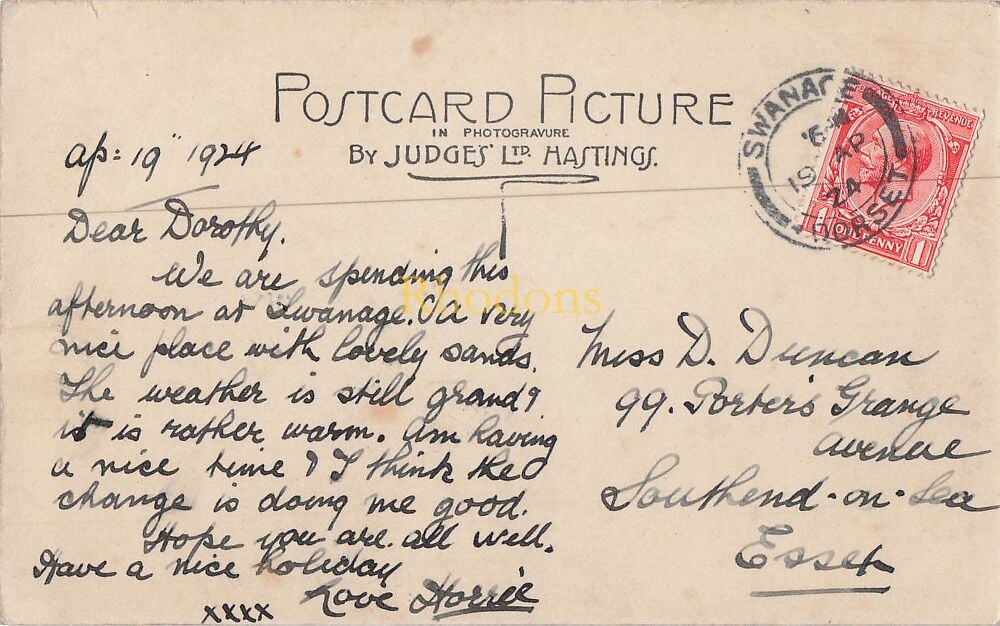 POSTCARD PICTURE
IN PHOTOGRAVURE
BY JUDGES' LTD. HASTINGS.
SWANAGE
19 AP
24
DORSET
POSTAGE REVENUE
1 ONE PENNY 1
Ap: 19" 1924
Dear Dorothy.
We are spending this
afternoon at Swanage. a very
nice place with lovely sands.
The weather is still grand &
it is rather warm. Am having
a nice time & I think the
change is doing me good.
Hope you are all well.
Have a nice holiday
Love Horrie
xxxx
Miss D. Duncan
99. Porters Grange
Avenue
Southend-on-Sea
Essex
Rhodons